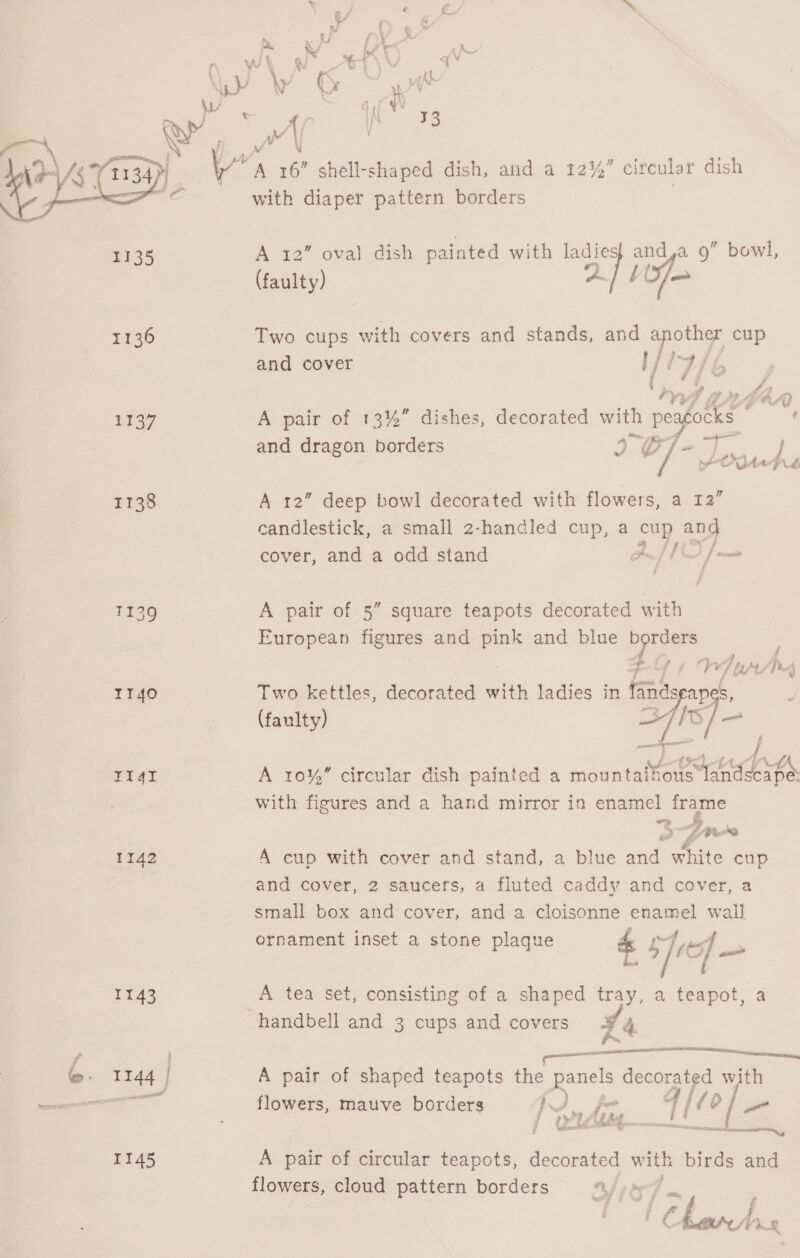 73
1134 A 16” shell-shaped dish, and a 12½” circular dish
with diaper pattern borders
1135 A 12” oval dish painted with ladies and a 9” bowl,
(faulty) 2/10/-
1136 Two cups with covers and stands, and another cup
and cover 1/17/6
1137 A pair of 13½” dishes, decorated with peacocks
and dragon borders
1138 A 12” deep bowl decorated with flowers, a 12”
candlestick, a small 2-handled cup, a cup and
cover, and a odd stand 2/10/-
1139 A pair of 5” square teapots decorated with
European figures and pink and blue borders
1140 Two kettles, decorated with ladies in landscapes,
(faulty)
1141 A 10½” circular dish painted a mountainous landscape
with figures and a hand mirror in enamel frame
1142 A cup with cover and stand, a blue and white cup
and cover, 2 saucers, a fluted caddy and cover, a
small box and cover, and a cloisonne enamel wall
ornament inset a stone plaque
1143 A tea set, consisting of a shaped tray, a teapot, a
handbell and 3 cups and covers
1144 A pair of shaped teapots the panels decorated with
flowers, mauve borders
1145 A pair of circular teapots, decorated with birds and
flowers, cloud pattern borders